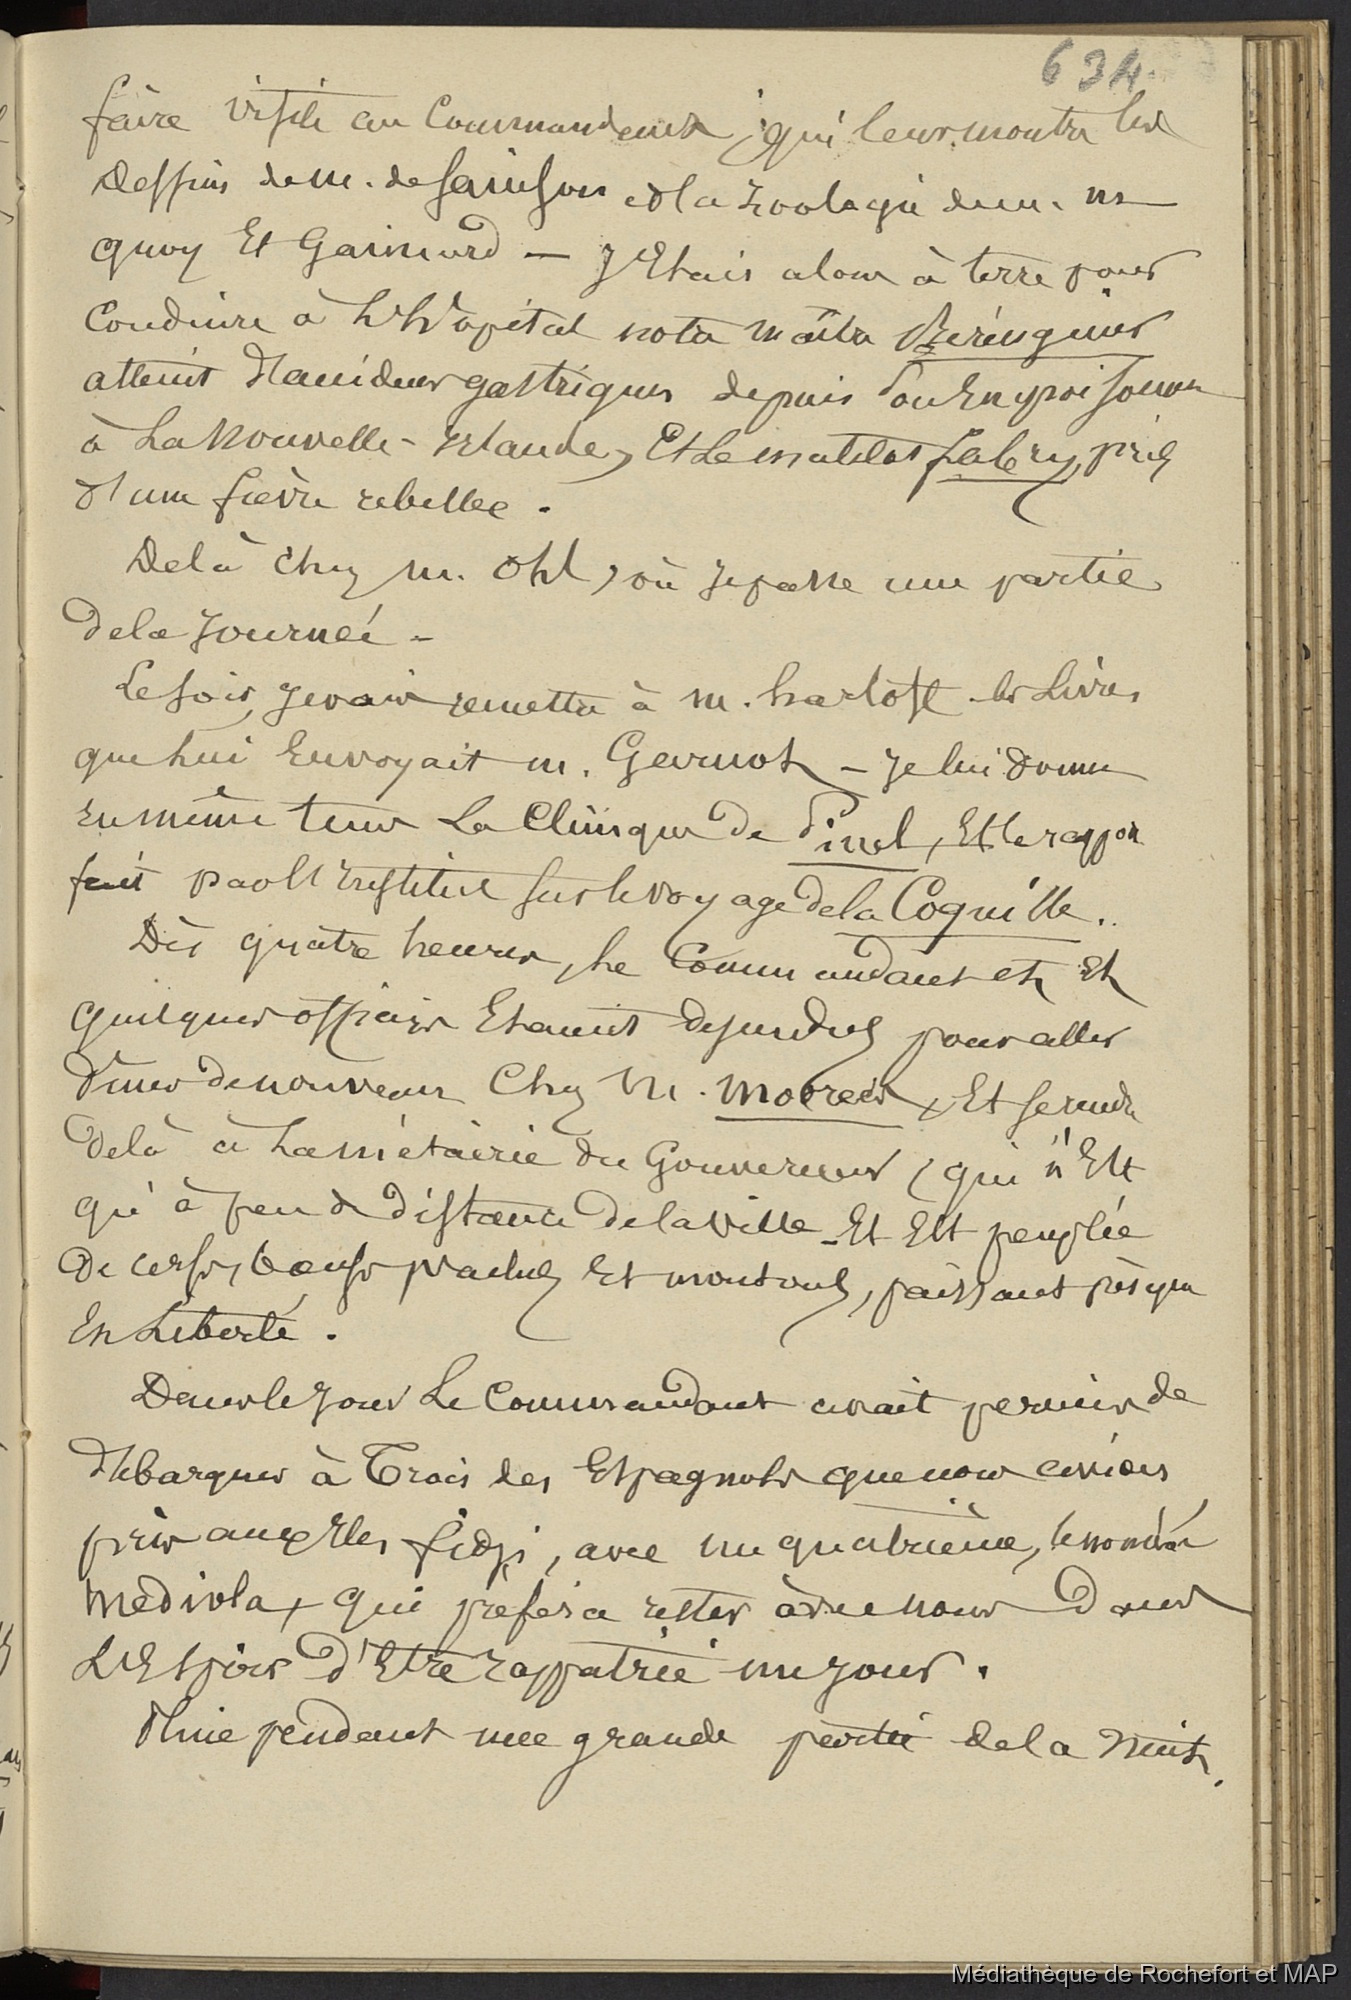 634.
faire visite au Commandant, qui leur montra les
Dessins de M. de Sainson et la zoologie de m. m
quoy Et Gaimard — J'Etais alors à terre pour
Conduire à L'hôpital notre maître Béringuier
atteint d'acideur gastriques depuis son Empoisonne
à La Nouvelle-Irlande, Et Le matelot Fabry, pris
d'une fièvre rebelle.
De là chez M. Ohl, où je passe une partie
de la Journée -
Le soir, je vais remettre à M. harloff les Livres
que lui Envoyait m. Garnot - je lui donne
En même tems La Clinique de Pinel, Et le rappor
fait par l'Institut sur le voyage de la Coquille.
Dès quatre heures, le Commandant et
quelques officiers Etaient descendus pour aller
dîner de nouveau Chez M. Moorees, Et se rendre
delà à La métairie du Gouverneur, qui n'Est
qu'à peu de distance de la ville - Et Est peuplée
De cerfs, bœufs vaches Et moutons, paissant presque
En Liberté.
Dans le jour Le Commandant avait permis de
débarquer à Trois des Espagnols que nous avions
pris aux Iles fidji, avec un quatrième, le nommé
Mediola, qui préféra rester avec nous Dans
L'Espoir d'Etre rappatrié un jour.
Pluie pendant une grande partie de la Nuit.
Médiathèque de Rochefort et MAP